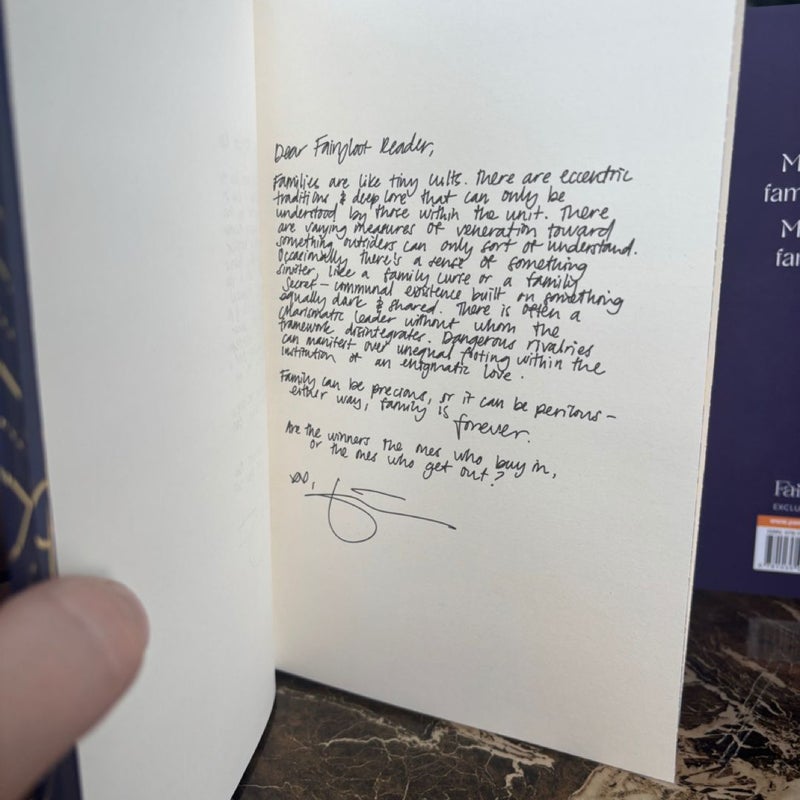 Dear Fairyloot Reader,
Families are like tiny cults. There are eccentric
traditions & deep lore that can only be
understood by those within the unit. There
are varying measures of veneration toward
something outsiders can only sort of understand.
Occasionally there's a sense of something
sinister, like a family curse or a family
secret – communal existence built on something
equally dark & shared. There is often a
charismatic leader without whom the
framework disintegrates. Dangerous rivalries
can manifest over unequal footing within the
institution of an enigmatic love.
Family can be precious, or it can be perilous –
either way, family is forever.
Are the winners the ones who buy in,
or the ones who get out?
xoxo,
M
fam
M
fa
Fai
EXCLU